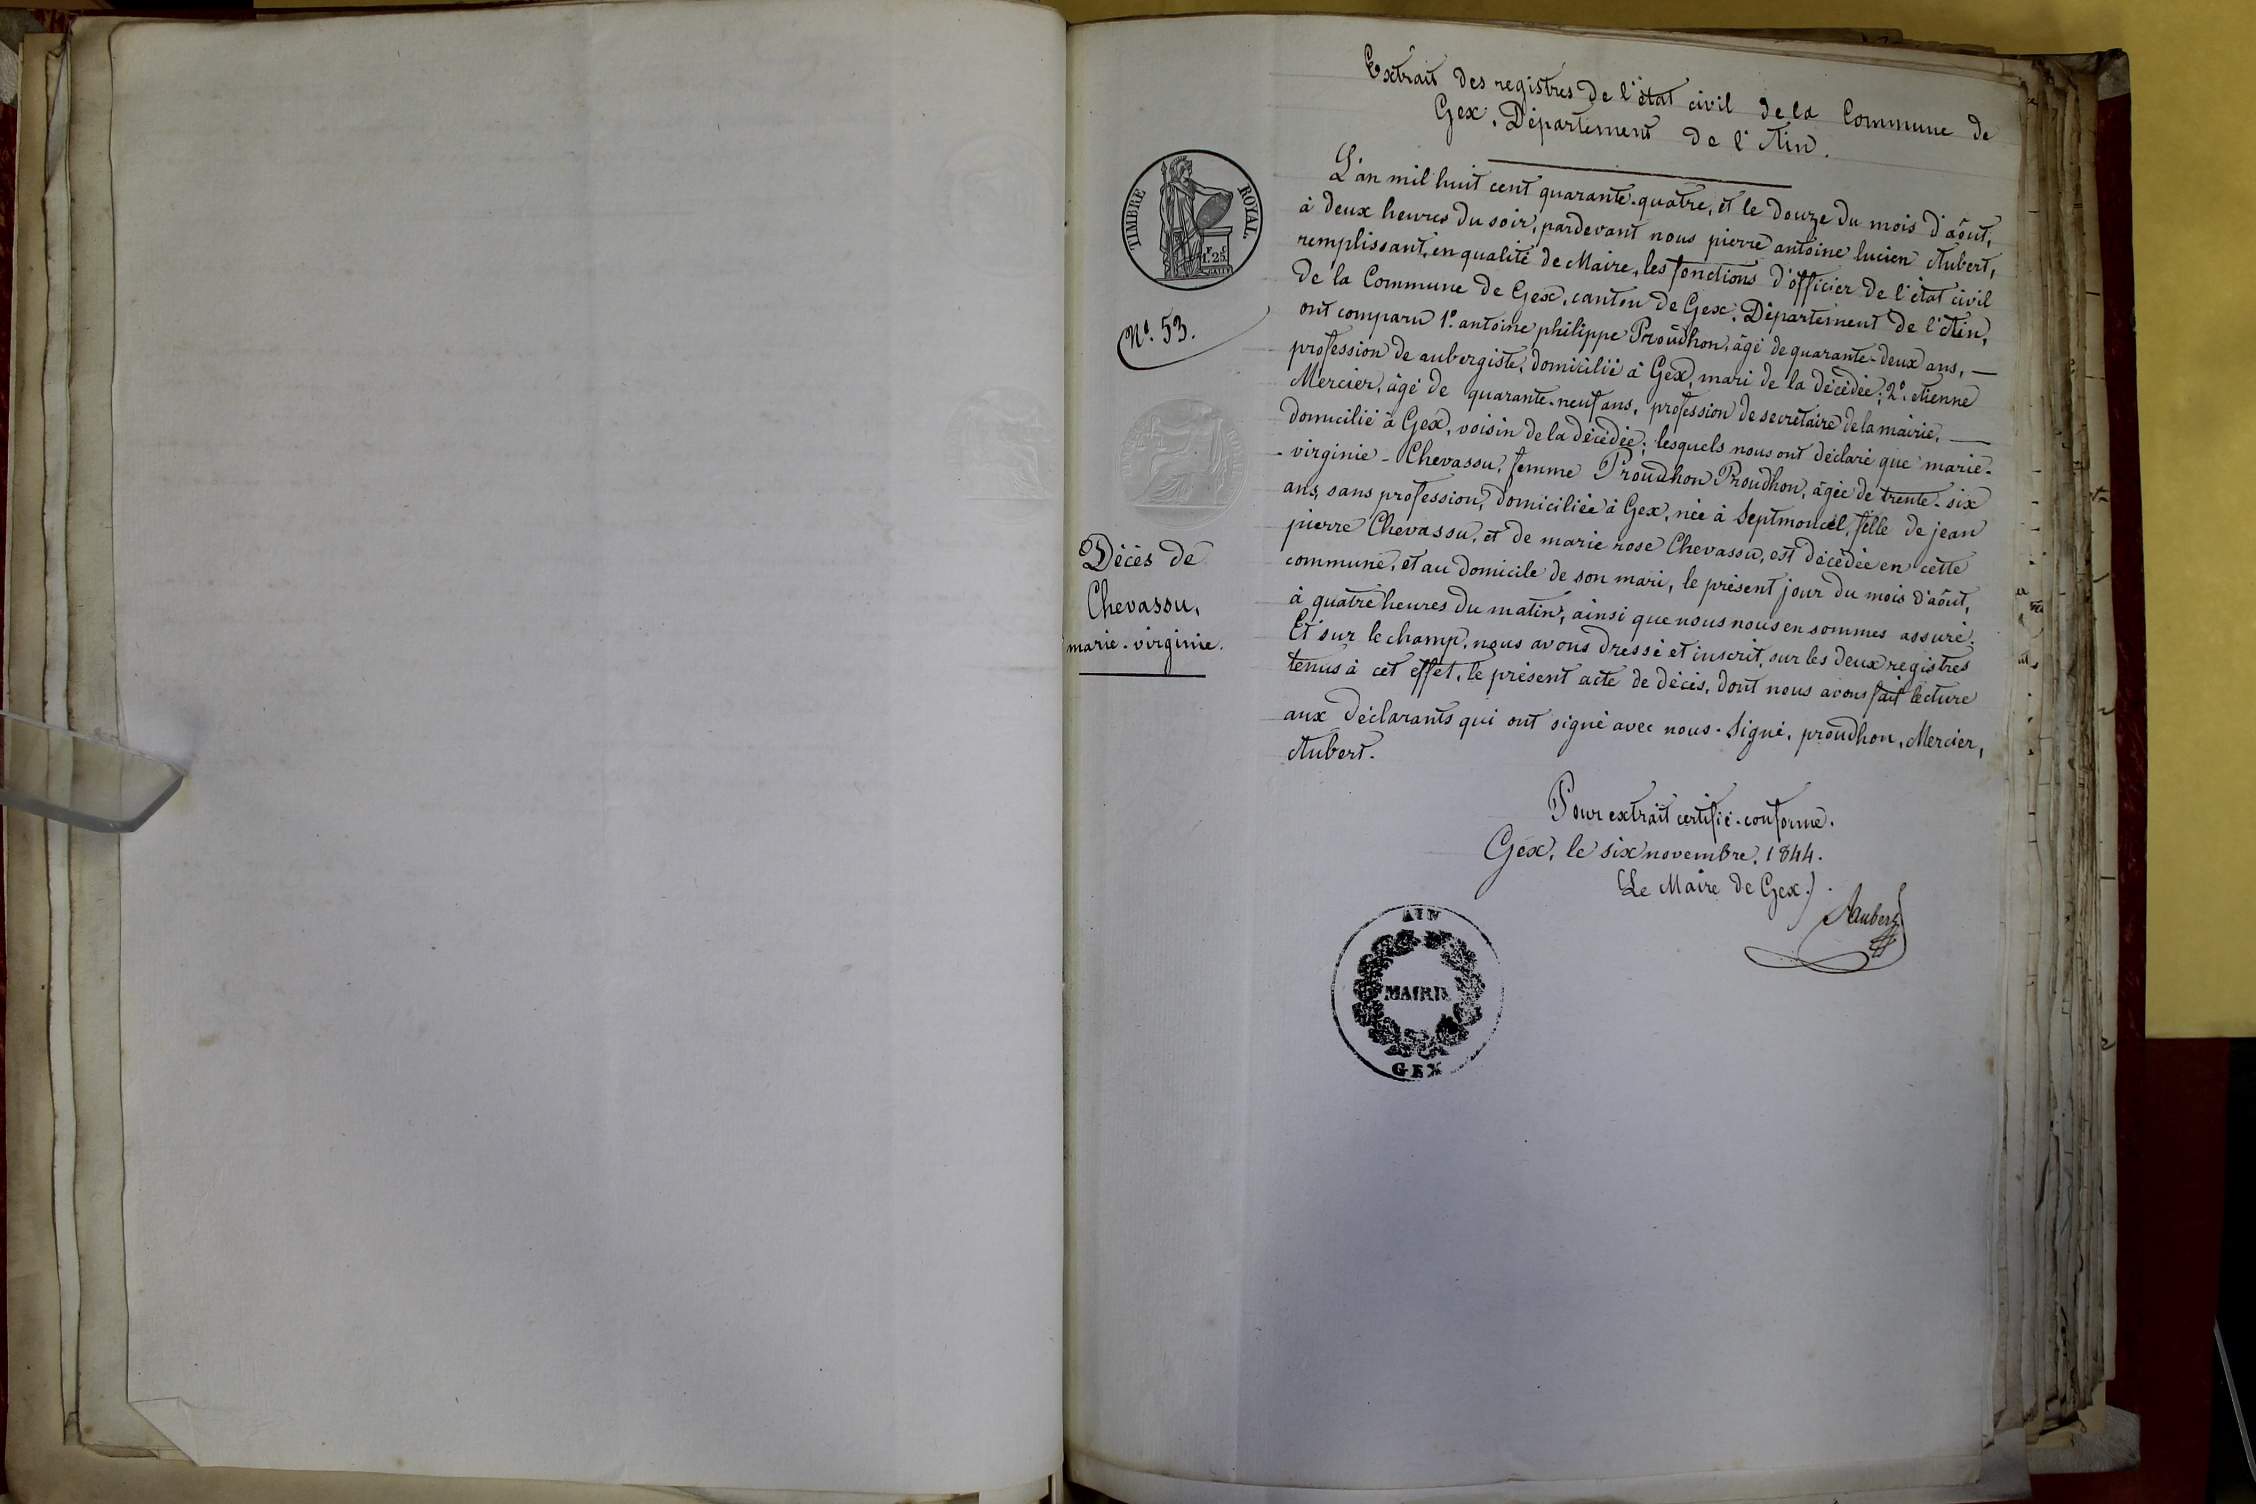 Extrait des registres de l'état civil de la Commune de
Gex, Département de l'Ain.
TIMBRE ROYAL.
F. C.
1. 25.
N.° 53.
Décès de
Chevassu,
marie-virginie.
L'an mil huit cent quarante-quatre, et le douze du mois d'août,
à deux heures du soir, pardevant nous pierre antoine lucien Aubert,
remplissant, en qualité de Maire, les fonctions d'officier de l'état civil
de la Commune de Gex, canton de Gex, Département de l'Ain,
ont comparu 1.° antoine philippe Proudhon, âgé de quarante-deux ans, —
profession de aubergiste, domicilié à Gex, mari de la décédée; 2.° etienne
Mercier, âgé de quarante-neuf ans, profession de secrétaire de la mairie, —
domicilié à Gex, voisin de la décédée; lesquels nous ont déclaré que marie-
- virginie - Chevassu, femme Proudhon Proudhon, âgée de trente-six
ans, sans profession, domiciliée à Gex, née à Septmoncel, fille de jean
pierre Chevassu, et de marie rose Chevassu, est décédée en cette
commune, et au domicile de son mari, le présent jour du mois d'août,
à quatre heures du matin, ainsi que nous nous en sommes assuré.
Et sur le champ, nous avons dressé et inscrit, sur les deux registres
tenus à cet effet, le présent acte de décès, dont nous avons fait lecture
aux déclarants qui ont signé avec nous. Signé, proudhon, Mercier,
Aubert.
Pour extrait certifié-conforme.
Gex, le six novembre, 1844.
(Le Maire de Gex.)
Aubert
AIN
MAIRIE
GEX